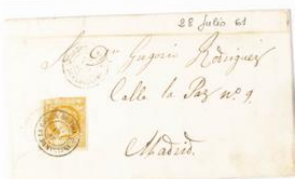 28 Julio 61
A Dn. Gregorio Rodriguez
Calle la Paz nº 9.
Madrid.